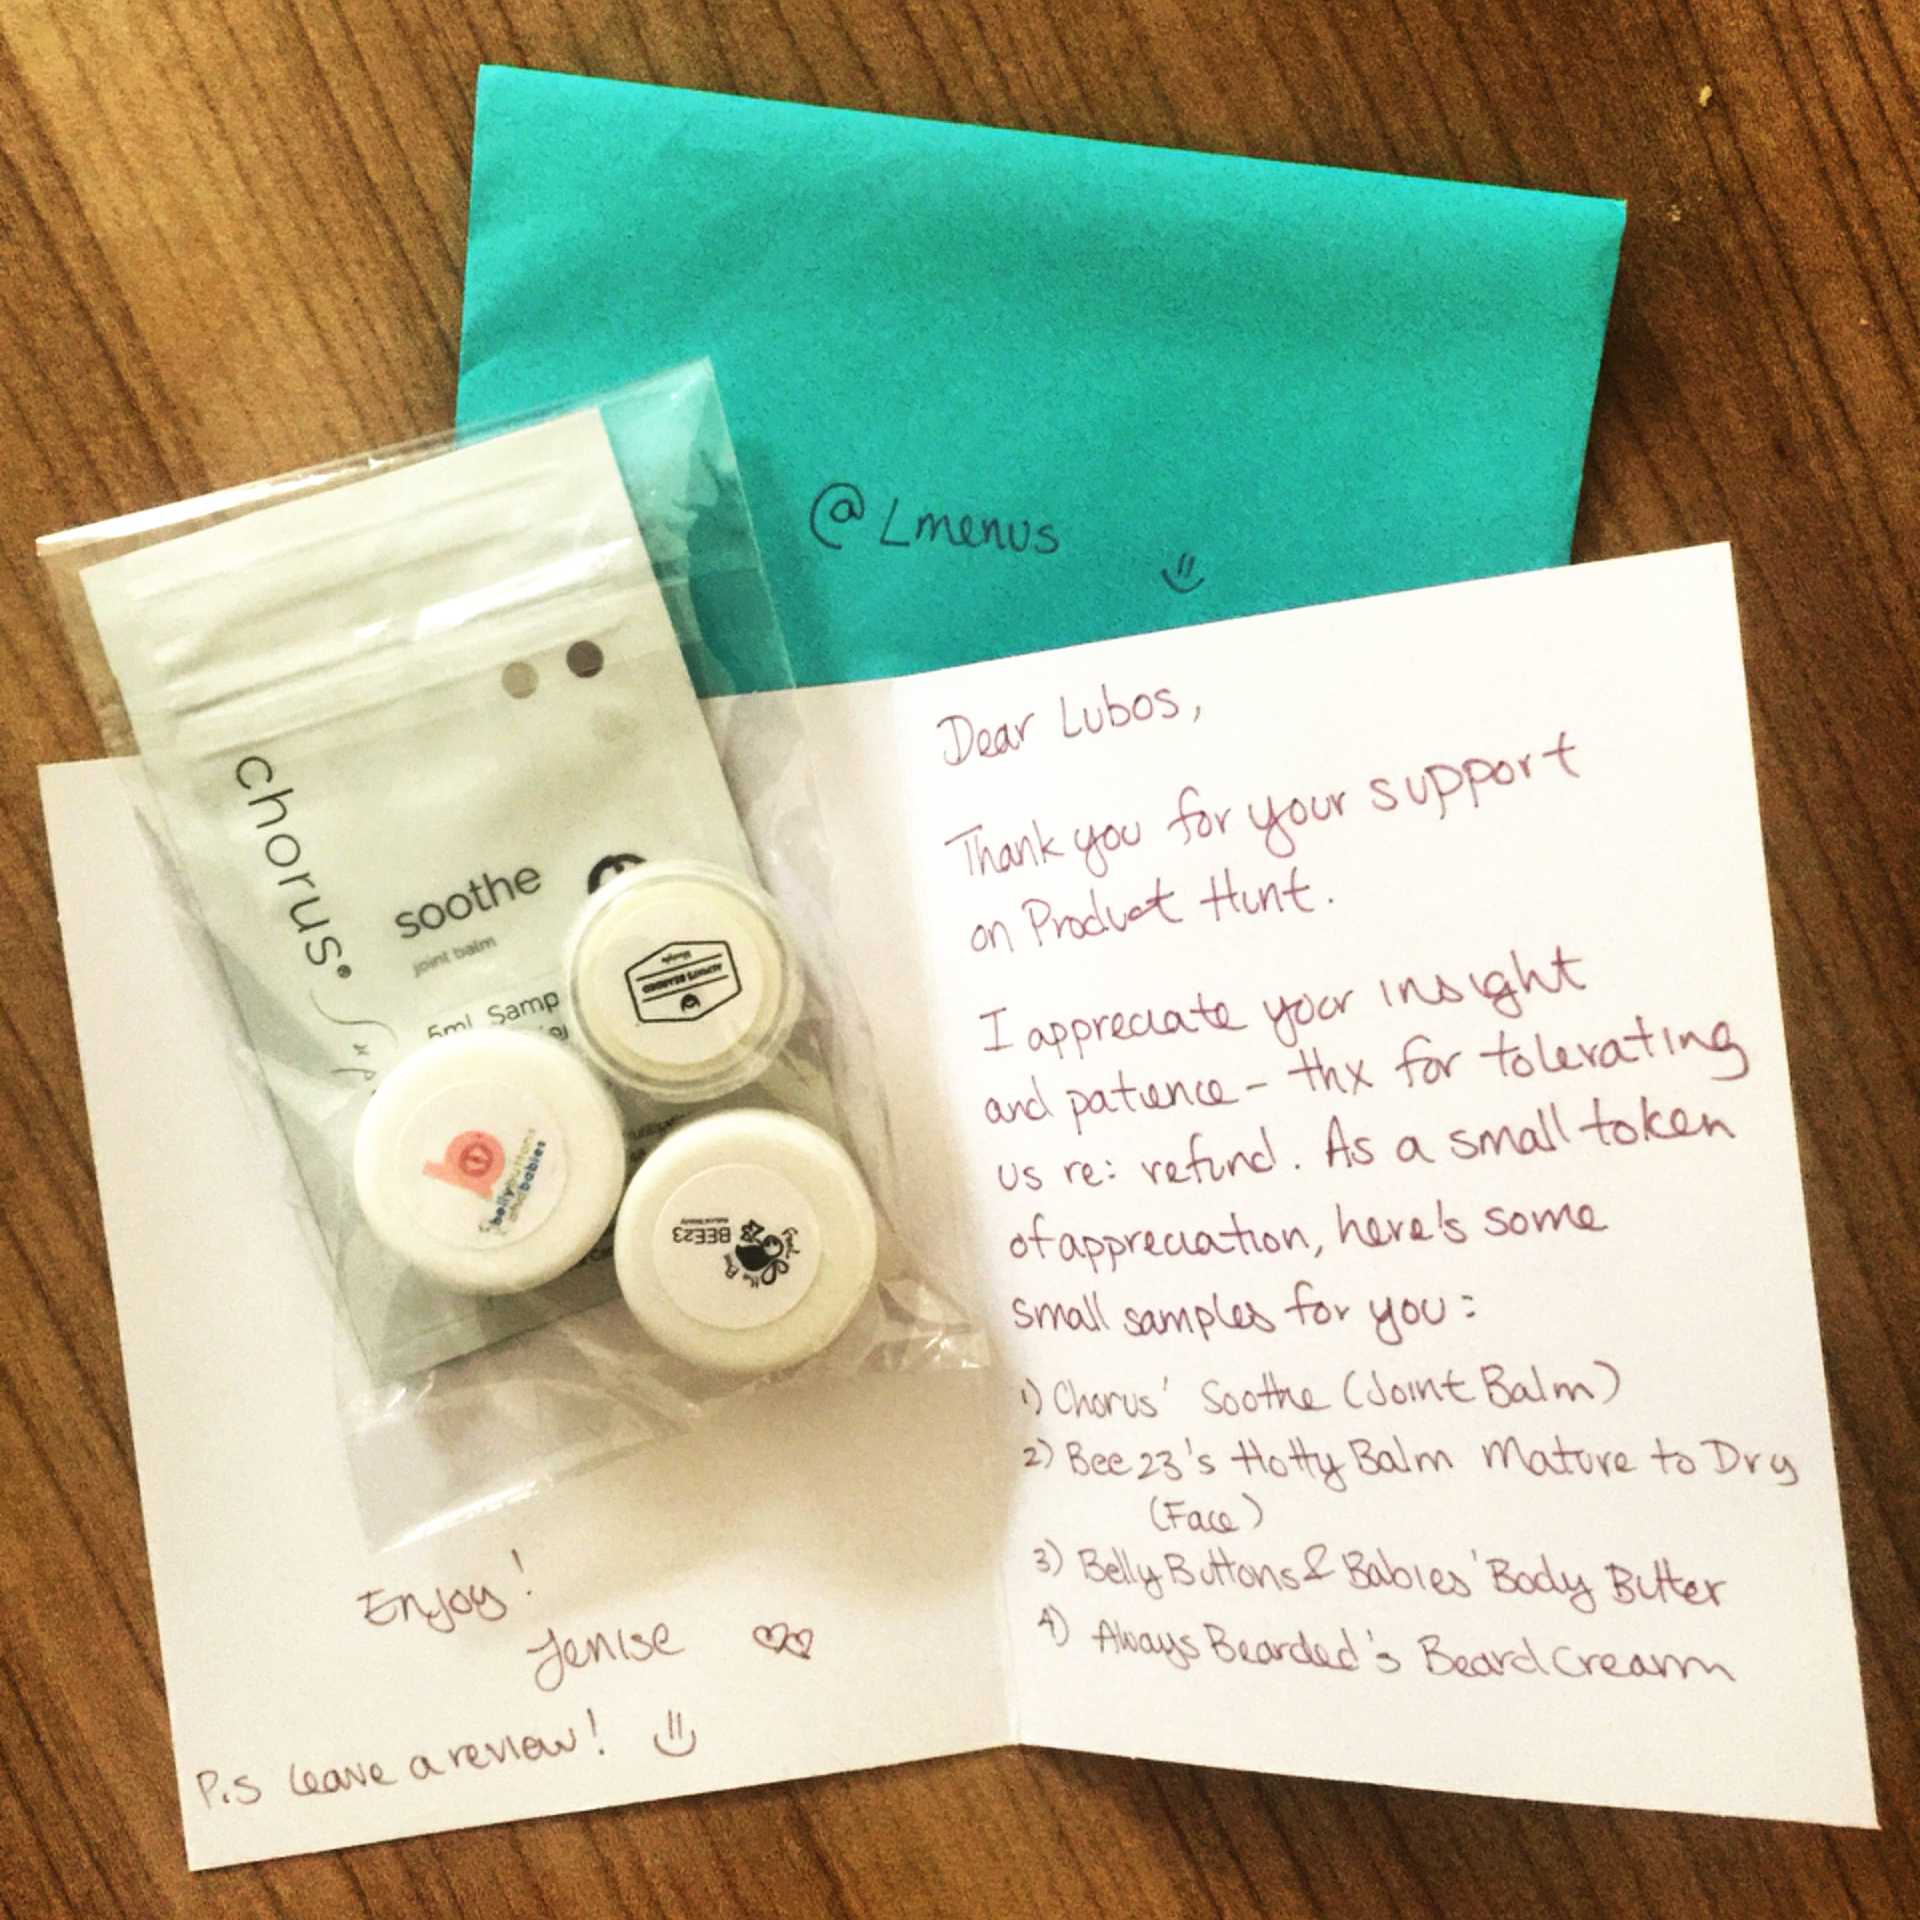 @Lmenus
chorus
soothe
joint balm
5ml Samp
ALWAYS BEARDED
bellybuttons
andbabies
BEE23
Dear Lubos,
Thank you for your support
on Product Hunt.
I appreciate your insight
and patience - thx for tolerating
us re: refund. As a small token
of appreciation, here's some
small samples for you:
1) Chorus' Soothe (Joint Balm)
2) Bee23's Hotty Balm Mature to Dry
(Face)
3) Belly Buttons & Babies' Body Butter
4) Always Bearded's Beard Cream
Enjoy!
Jenise
P.S Leave a review!